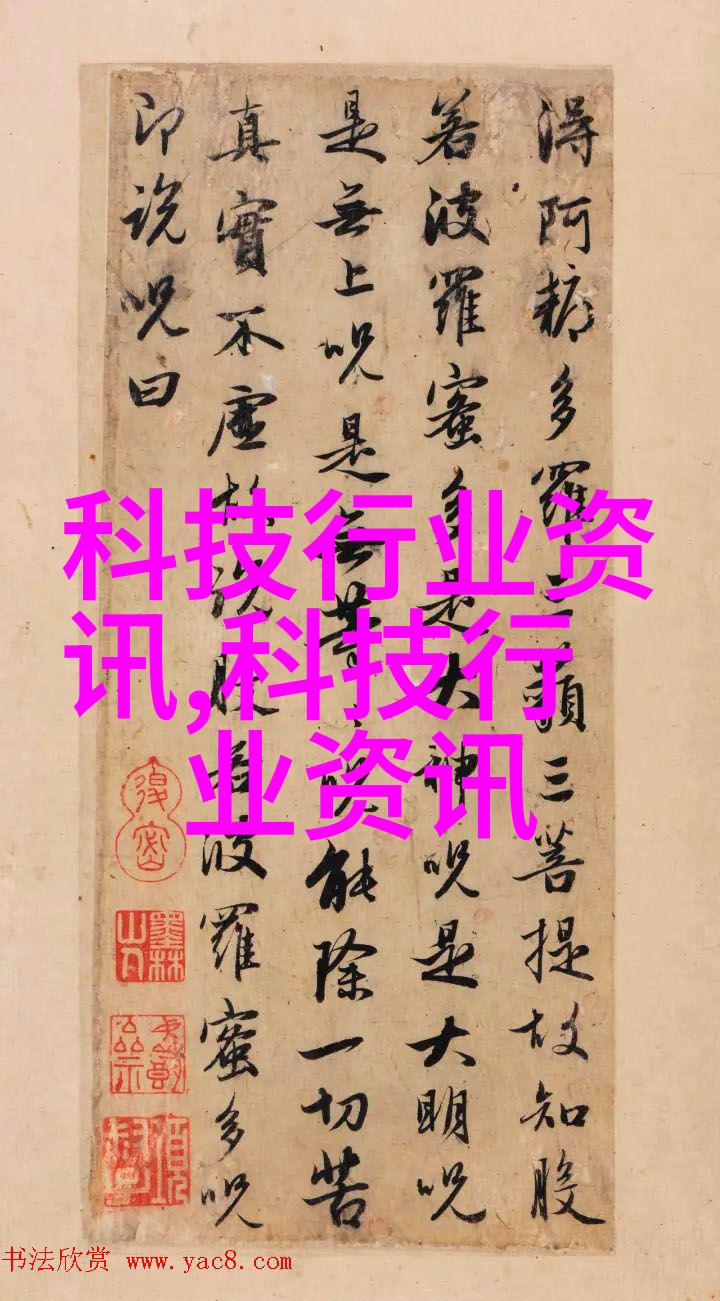 得阿耨多羅三藐三菩提故知般
若波羅蜜多是大神呪是大明呪
是無上呪是無等等呪能除一切苦
真實不虛故說般若波羅蜜多呪
即說呪曰
科技行业资
讯,科技行
业资讯
墨林山人
书法欣赏 www.yac8.com